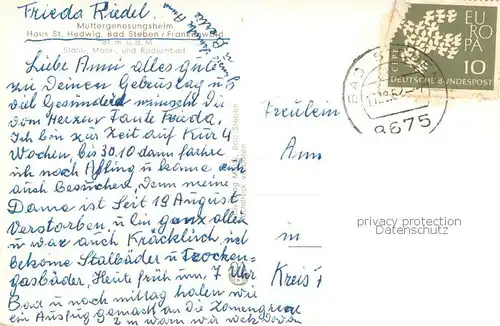 Frieda Riedel.
Müttergenesungsheim
Haus St. Hedwig, Bad Steben / Frankenwald
Stahl-, Moor- und Radiumbad
Liebe Anni alles gute
zu Deinen Geburstag u
viel Gesundheid wünscht dir
vom Herzen Tante Frieda,
Ich bin zur Zeit auf Kur 4
Wochen, bis 30.10 dann fahre
ich noch u komme
auch Besuchen, Denn meine
Dama ist Seit 19 August
Verstorben, u bin ganz allei
u war auch Kräcklich, ich
bekome Stalbäder u Trocken-
gasbäder, Heute früh um 7 Uhr
Bad u noch mittag haben wir
ein Ausflug gemacht an die Zonengrenze
wir
EUROPA
10
DEUTSCHE BUNDESPOST
BAD STEBEN
8675
Fräulein
Ann
in
Kreis
privacy protection
Datenschutz